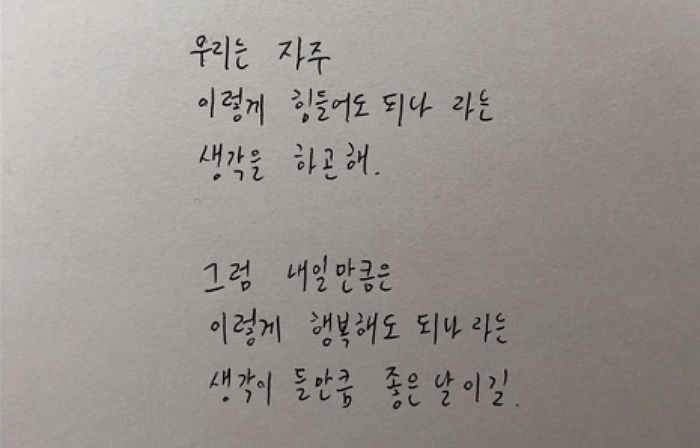 우리는 자주
이렇게 힘들어도 되나 라는
생각을 하곤해.
그럼 내일만큼은
이렇게 행복해도 되나 라는
생각이 들만큼 좋은 날이길.